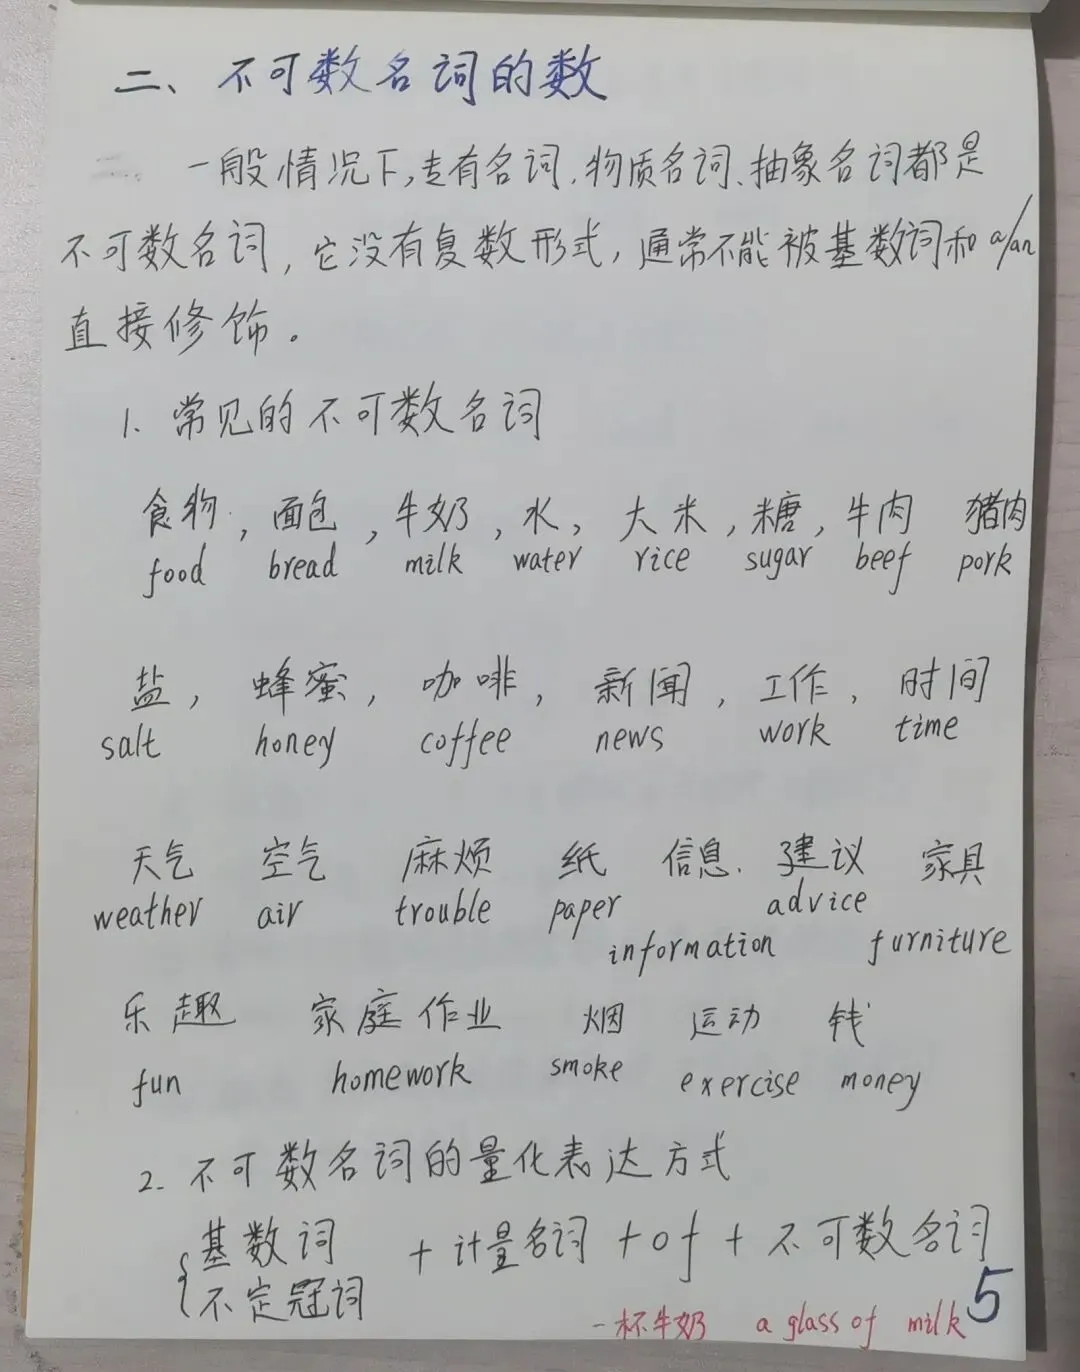 二、不可数名词的数
一般情况下,专有名词、物质名词、抽象名词都是
不可数名词,它没有复数形式,通常不能被基数词和a/an
直接修饰。
1. 常见的不可数名词
食物,面包,牛奶,水,大米,糖,牛肉 猪肉
food bread milk water rice sugar beef pork
盐,蜂蜜,咖啡,新闻,工作,时间
salt honey coffee news work time
天气 空气 麻烦 纸 信息. 建议 家具
weather air trouble paper information advice furniture
乐趣 家庭作业 烟 运动 钱
fun homework smoke exercise money
2. 不可数名词的量化表达方式
{基数词 + 计量名词 + of + 不可数名词
不定冠词
一杯牛奶 a glass of milk
5